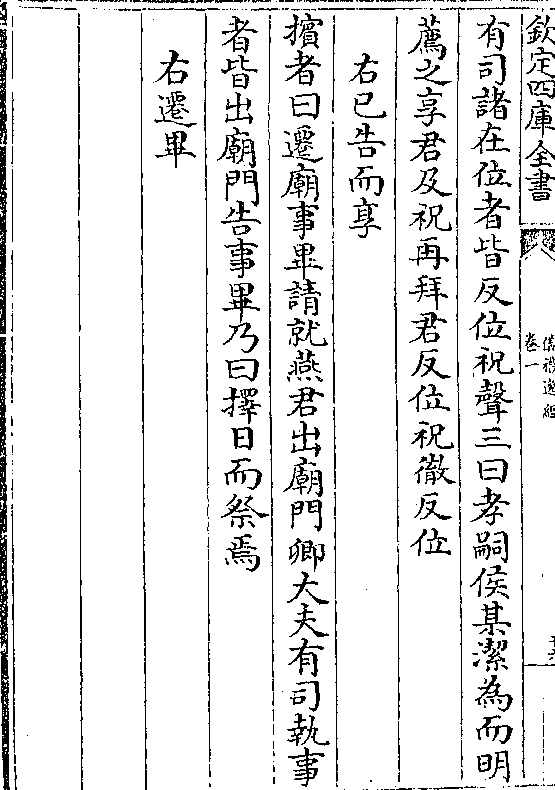 欽定四庫全書
儀禮逸經
卷一
有司諸在位者皆反位祝聲三曰孝嗣侯某潔為而明
薦之享君及祝再拜君反位祝徹反位
右已告而享
擯者曰遷廟事畢請就燕君出廟門卿大夫有司執事
者皆出廟門告事畢乃曰擇日而祭焉
右遷畢